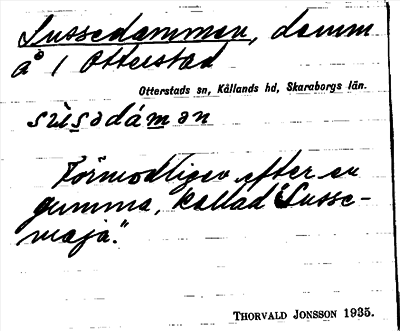 Sussedammen, damm
å 1 Otterstad
Otterstads sn, Kållands hd, Skaraborgs län.
sùsədámən
Förmodligen efter en
gumma, kallad "Susse-
maja".
THORVALD JONSSON 1935.